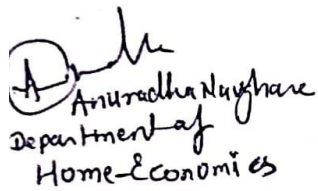 Anuradha Nayhare
Department of
Home-Economics